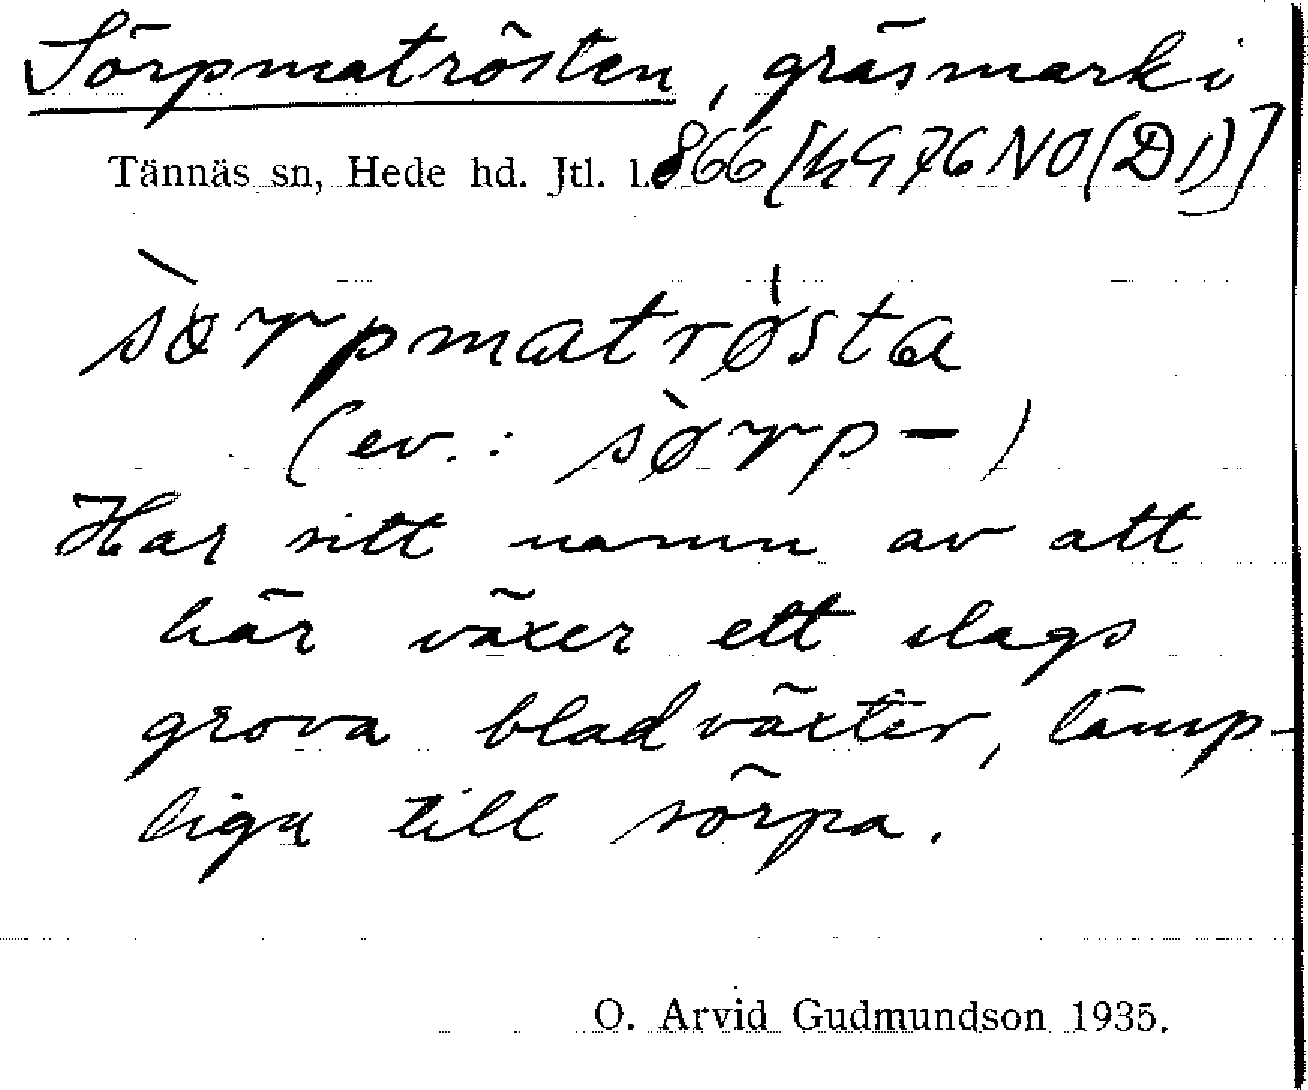 Sörpmatrösten, gräsmark i
Tännäs sn, Hede hd. Jtl. l. 866 [hG76NO(D1)]
sørpmatrøsta
(ev.: sørp-)
Har sitt namn av att
här växer ett slags
grova bladväxter, lämp-
liga till sörpa.
O. Arvid Gudmundson 1935.